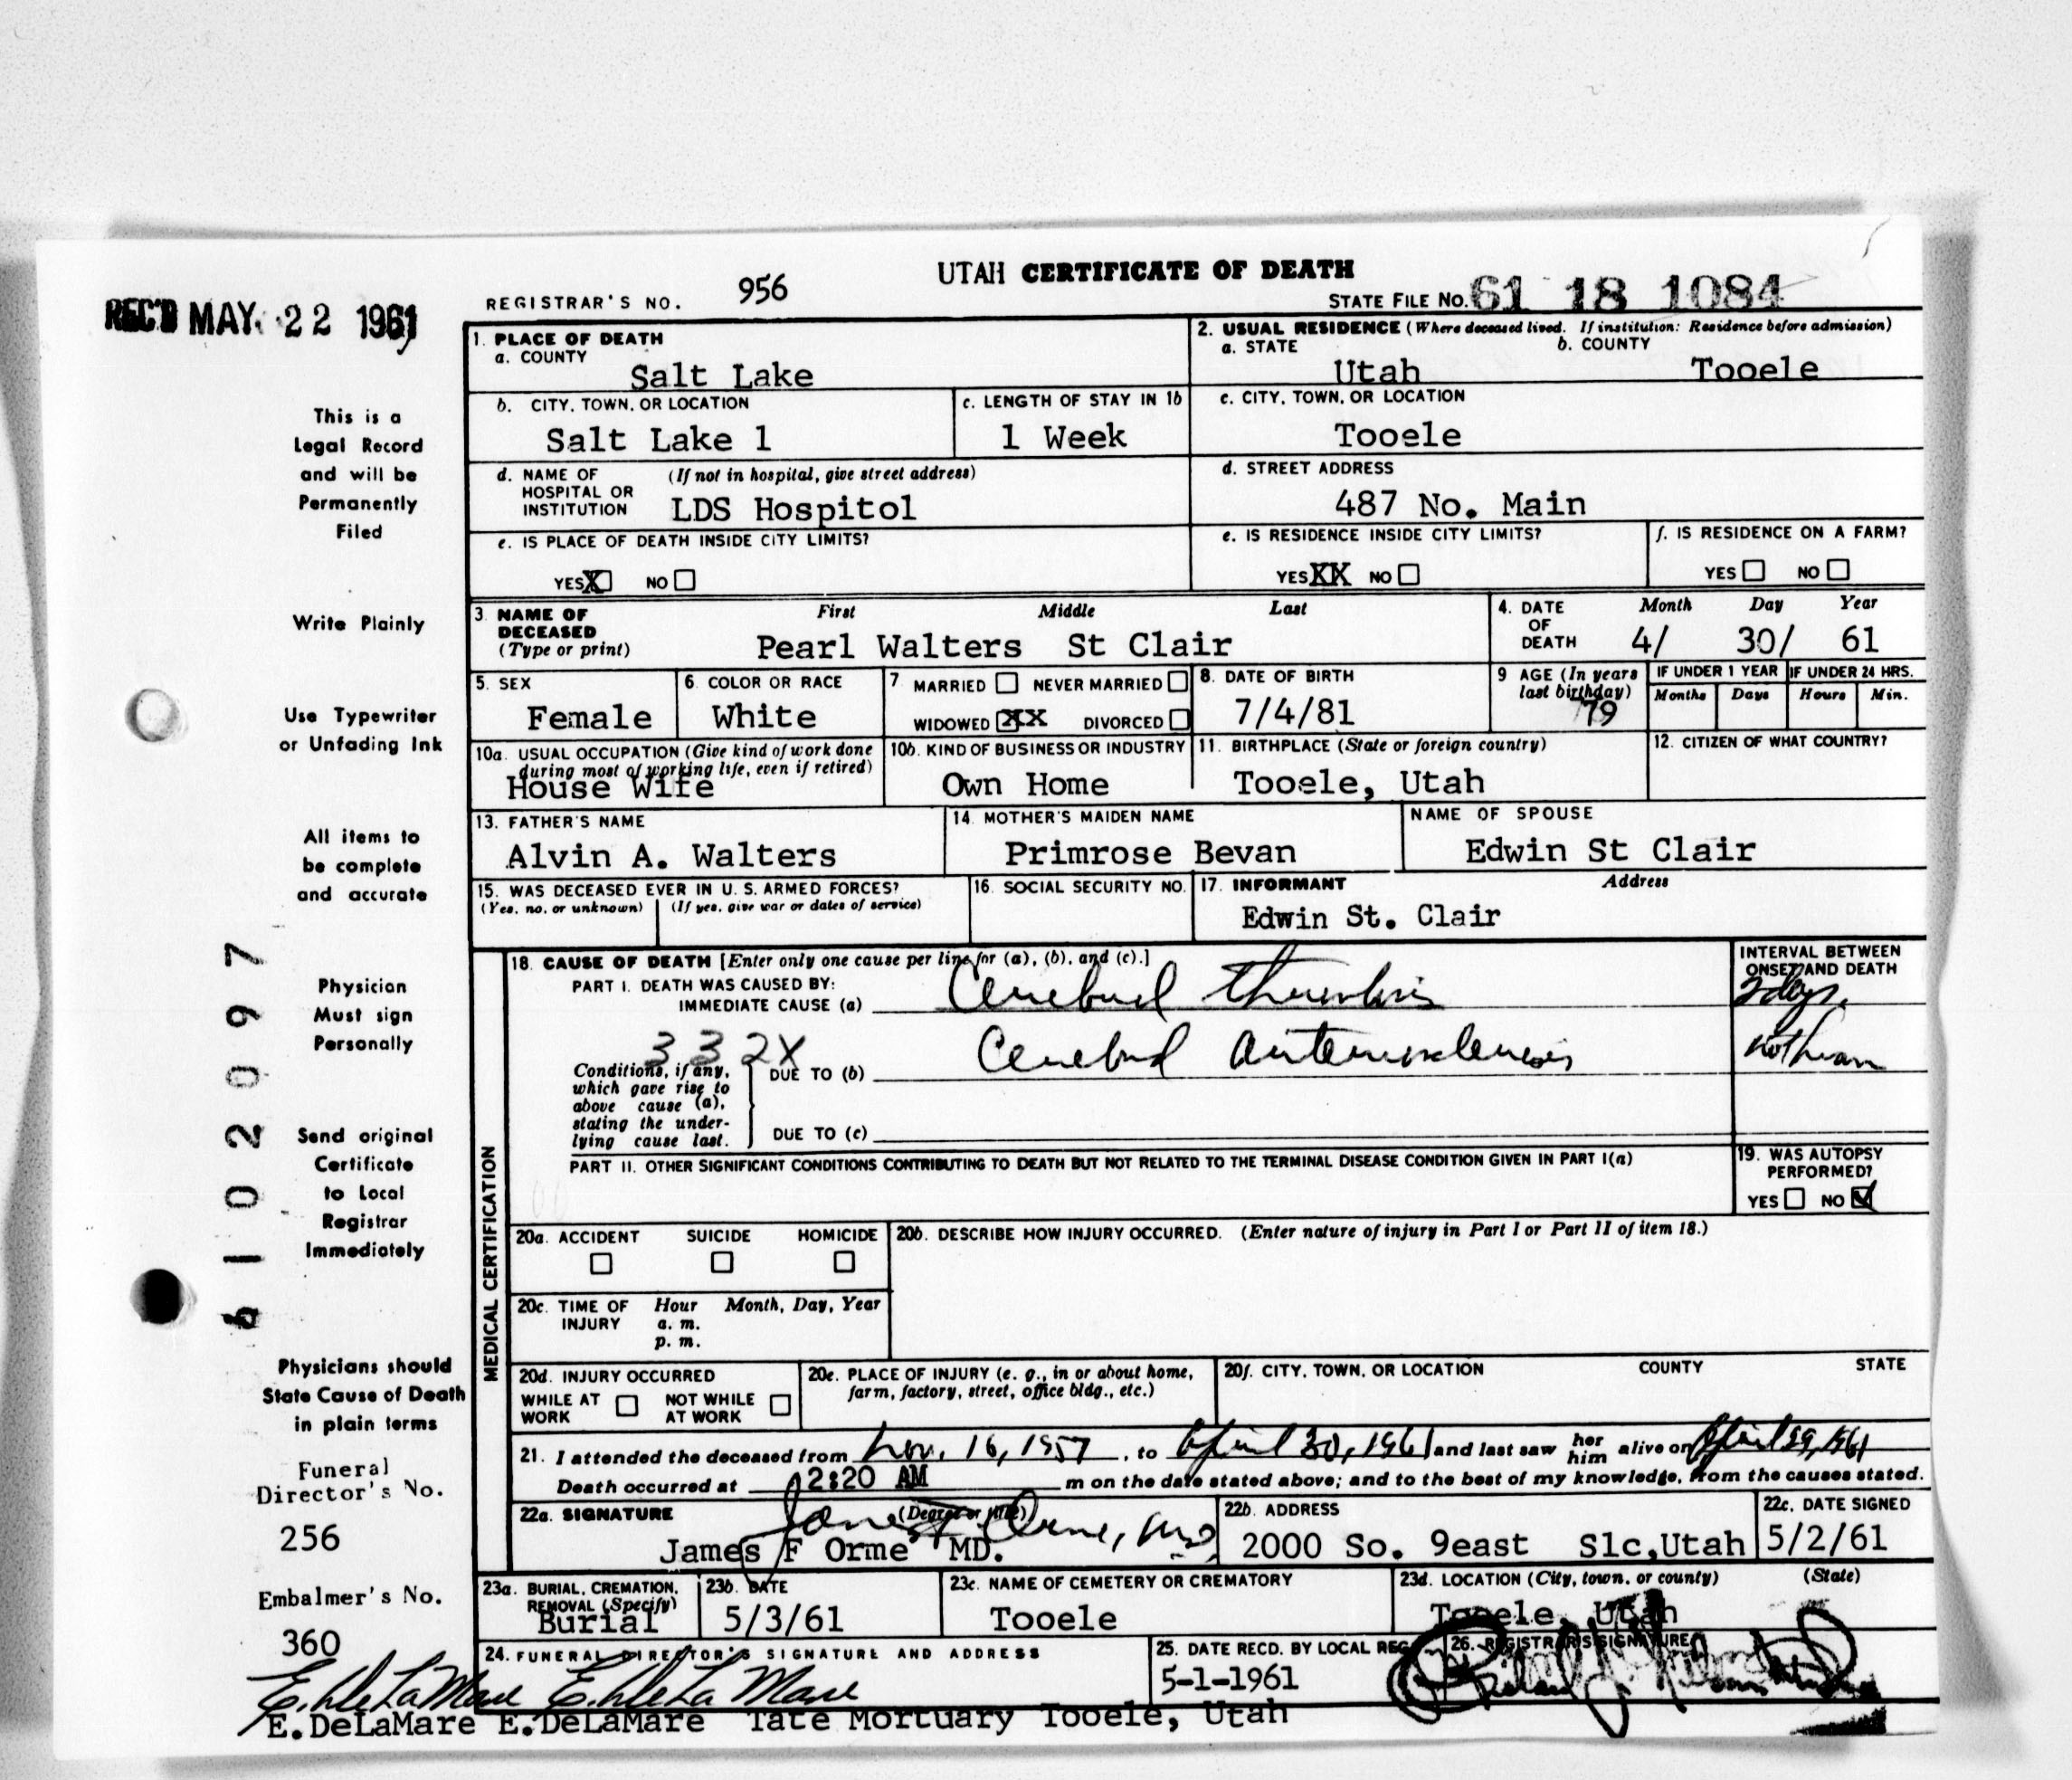 UTAH CERTIFICATE OF DEATH
REGISTRAR'S NO. 956
STATE FILE NO. 61 18 1084
REC'D MAY 22 1961
1. PLACE OF DEATH
a. COUNTY
Salt Lake
2. USUAL RESIDENCE (Where deceased lived. If institution: Residence before admission)
a. STATE b. COUNTY
Utah Tooele
b. CITY, TOWN, OR LOCATION
Salt Lake 1
c. LENGTH OF STAY IN 1b
1 Week
c. CITY, TOWN, OR LOCATION
Tooele
d. NAME OF HOSPITAL OR INSTITUTION (If not in hospital, give street address)
LDS Hospitol
d. STREET ADDRESS
487 No. Main
e. IS PLACE OF DEATH INSIDE CITY LIMITS?
YES X NO
e. IS RESIDENCE INSIDE CITY LIMITS?
YES XX NO
f. IS RESIDENCE ON A FARM?
YES NO
3. NAME OF DECEASED (Type or print)
First Middle Last
Pearl Walters St Clair
4. DATE OF DEATH
Month Day Year
4/ 30/ 61
5. SEX
Female
6. COLOR OR RACE
White
7 MARRIED NEVER MARRIED
WIDOWED XX DIVORCED
8. DATE OF BIRTH
7/4/81
9 AGE (In years last birthday)
79
IF UNDER 1 YEAR
Months Days
IF UNDER 24 HRS.
Hours Min.
10a. USUAL OCCUPATION (Give kind of work done during most of working life, even if retired)
House Wife
10b. KIND OF BUSINESS OR INDUSTRY
Own Home
11. BIRTHPLACE (State or foreign country)
Tooele, Utah
12. CITIZEN OF WHAT COUNTRY?
13. FATHER'S NAME
Alvin A. Walters
14. MOTHER'S MAIDEN NAME
Primrose Bevan
NAME OF SPOUSE
Edwin St Clair
15. WAS DECEASED EVER IN U. S. ARMED FORCES?
(Yes, no, or unknown) (If yes, give war or dates of service)
16. SOCIAL SECURITY NO.
17. INFORMANT Address
Edwin St. Clair
MEDICAL CERTIFICATION
18. CAUSE OF DEATH [Enter only one cause per line for (a), (b), and (c).]
INTERVAL BETWEEN ONSET AND DEATH
PART I. DEATH WAS CAUSED BY:
IMMEDIATE CAUSE (a) Cerebral thrombosis 2 days.
332X
Conditions, if any, which gave rise to above cause (a), stating the underlying cause last.
DUE TO (b) Cerebral arteriosclerosis
DUE TO (c)
PART II. OTHER SIGNIFICANT CONDITIONS CONTRIBUTING TO DEATH BUT NOT RELATED TO THE TERMINAL DISEASE CONDITION GIVEN IN PART I(a)
19. WAS AUTOPSY PERFORMED?
YES NO
20a. ACCIDENT SUICIDE HOMICIDE
20b. DESCRIBE HOW INJURY OCCURRED. (Enter nature of injury in Part I or Part II of item 18.)
20c. TIME OF INJURY Hour Month, Day, Year
a. m.
p. m.
20d. INJURY OCCURRED
WHILE AT WORK NOT WHILE AT WORK
20e. PLACE OF INJURY (e. g., in or about home, farm, factory, street, office bldg., etc.)
20f. CITY, TOWN, OR LOCATION COUNTY STATE
21. I attended the deceased from Nov. 16, 1957, to April 30, 1961 and last saw her him alive on April 29, 1961
Death occurred at 12:20 AM m on the date stated above; and to the best of my knowledge, from the causes stated.
22a. SIGNATURE (Degree or title)
James F Orme, M.D.
James F Orme MD.
22b. ADDRESS
2000 So. 9east Slc,Utah
22c. DATE SIGNED
5/2/61
23a. BURIAL, CREMATION, REMOVAL (Specify)
Burial
23b. DATE
5/3/61
23c. NAME OF CEMETERY OR CREMATORY
Tooele
23d. LOCATION (City, town, or county) (State)
Tooele, Utah
24. FUNERAL DIRECTOR'S SIGNATURE AND ADDRESS
E. DeLaMare E. DeLa Mare
E.DeLaMare E.DeLaMare Tate Mortuary Tooele, Utah
25. DATE RECD. BY LOCAL REG.
5-1-1961
26. REGISTRAR'S SIGNATURE
This is a
Legal Record
and will be
Permanently
Filed
Write Plainly
Use Typewriter
or Unfading Ink
All items to
be complete
and accurate
Physician
Must sign
Personally
Send original
Certificate
to Local
Registrar
Immediately
Physicians should
State Cause of Death
in plain terms
Funeral
Director's No.
256
Embalmer's No.
360
6102097